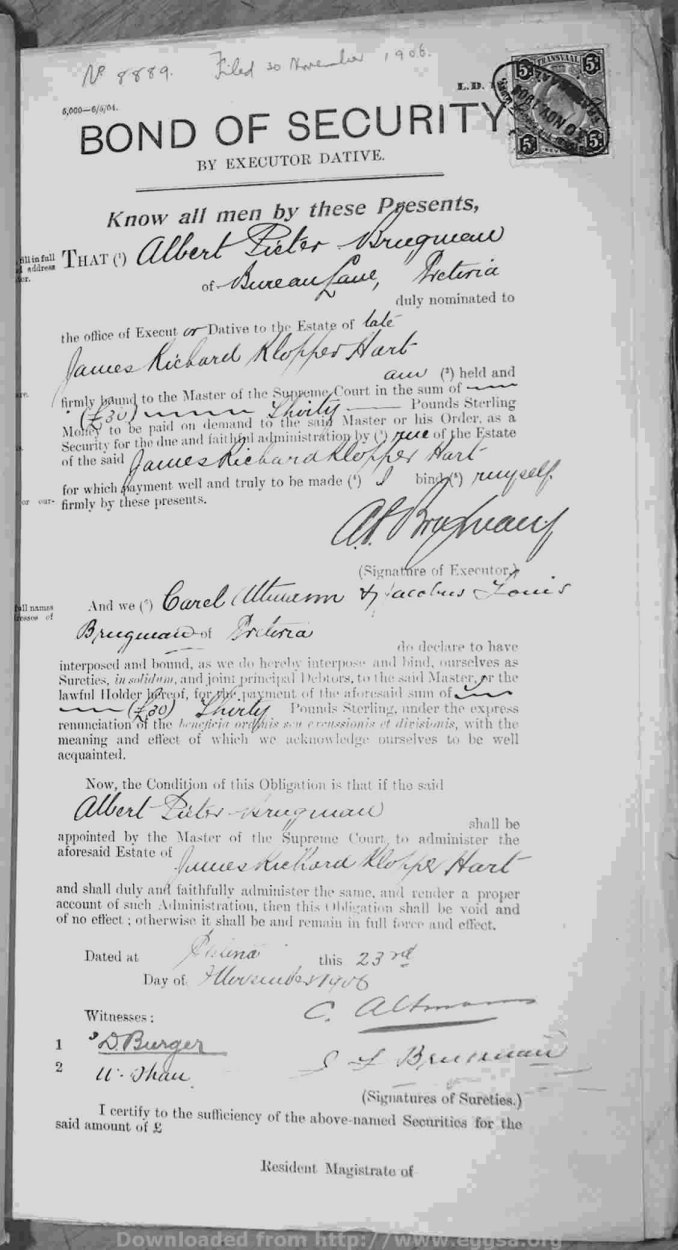 No 8889. Filed 30 November 1906.
L.D.
TRANSVAAL
5/ 5/
5/ 5/
5,000—6/5/04.
BOND OF SECURITY
BY EXECUTOR DATIVE.
Know all men by these Presents,
THAT (¹) Albert Pieter Brugman
of Bureau Lane, Pretoria
duly nominated to
the office of Execut or Dative to the Estate of late
James Richard Klopper Hart
am (²) held and
firmly bound to the Master of the Supreme Court in the sum of
(£30) Thirty Pounds Sterling
Money to be paid on demand to the said Master or his Order, as a
Security for the due and faithful administration by (³) me of the Estate
of the said James Richard Klopper Hart
for which payment well and truly to be made (⁴) I bind (⁵) myself
firmly by these presents.
A.P. Brugman
(Signature of Executor.)
And we (⁶) Carel Altmann & Jacobus Louis
Brugman of Pretoria
do declare to have
interposed and bound, as we do hereby interpose and bind, ourselves as
Sureties, in solidum, and joint principal Debtors, to the said Master, or the
lawful Holder hereof, for the payment of the aforesaid sum of
(£30) Thirty Pounds Sterling, under the express
renunciation of the beneficia ordinis seu excussionis et divisionis, with the
meaning and effect of which we acknowledge ourselves to be well
acquainted.
Now, the Condition of this Obligation is that if the said
Albert Pieter Brugman
shall be
appointed by the Master of the Supreme Court, to administer the
aforesaid Estate of James Richard Klopper Hart
and shall duly and faithfully administer the same, and render a proper
account of such Administration, then this Obligation shall be void and
of no effect; otherwise it shall be and remain in full force and effect.
Dated at this 23rd
Day of November 1906
Witnesses: C. Altmann
1 D. Burger
J L Brugman
2
(Signatures of Sureties.)
I certify to the sufficiency of the above-named Securities for the
said amount of £
Resident Magistrate of
Downloaded from http://www.eggsa.org